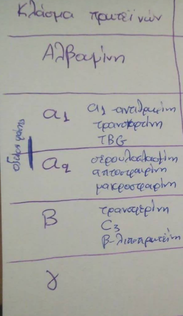 Κλάσμα πρωτεϊνών
Αλβουμίνη
α1
α1 αντιθρυψίνη
TBG
α2
σερουλοπλασμίνη
απτοσφαιρίνη
μακροσφαιρίνη
β
τρανσφερίνη
C3
β-λιποπρωτεΐνη
γ